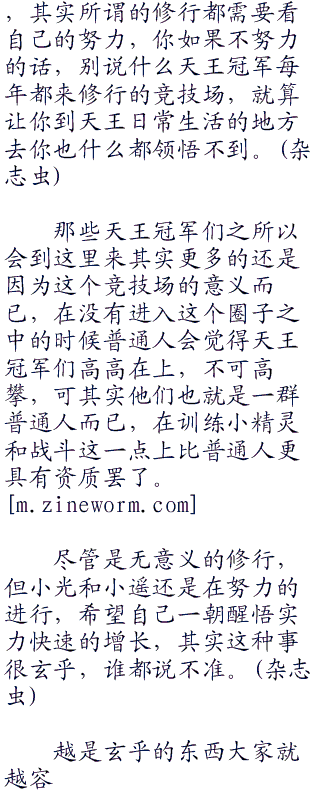 ，其实所谓的修行都需要看
自己的努力，你如果不努力
的话，别说什么天王冠军每
年都来修行的竞技场，就算
让你到天王日常生活的地方
去你也什么都领悟不到。(杂
志虫)
那些天王冠军们之所以
会到这里来其实更多的还是
因为这个竞技场的意义而
已，在没有进入这个圈子之
中的时候普通人会觉得天王
冠军们高高在上，不可高
攀，可其实他们也就是一群
普通人而已，在训练小精灵
和战斗这一点上比普通人更
具有资质罢了。
[m.zineworm.com]
尽管是无意义的修行，
但小光和小遥还是在努力的
进行，希望自己一朝醒悟实
力快速的增长，其实这种事
很玄乎，谁都说不准。(杂志
虫)
越是玄乎的东西大家就
越容